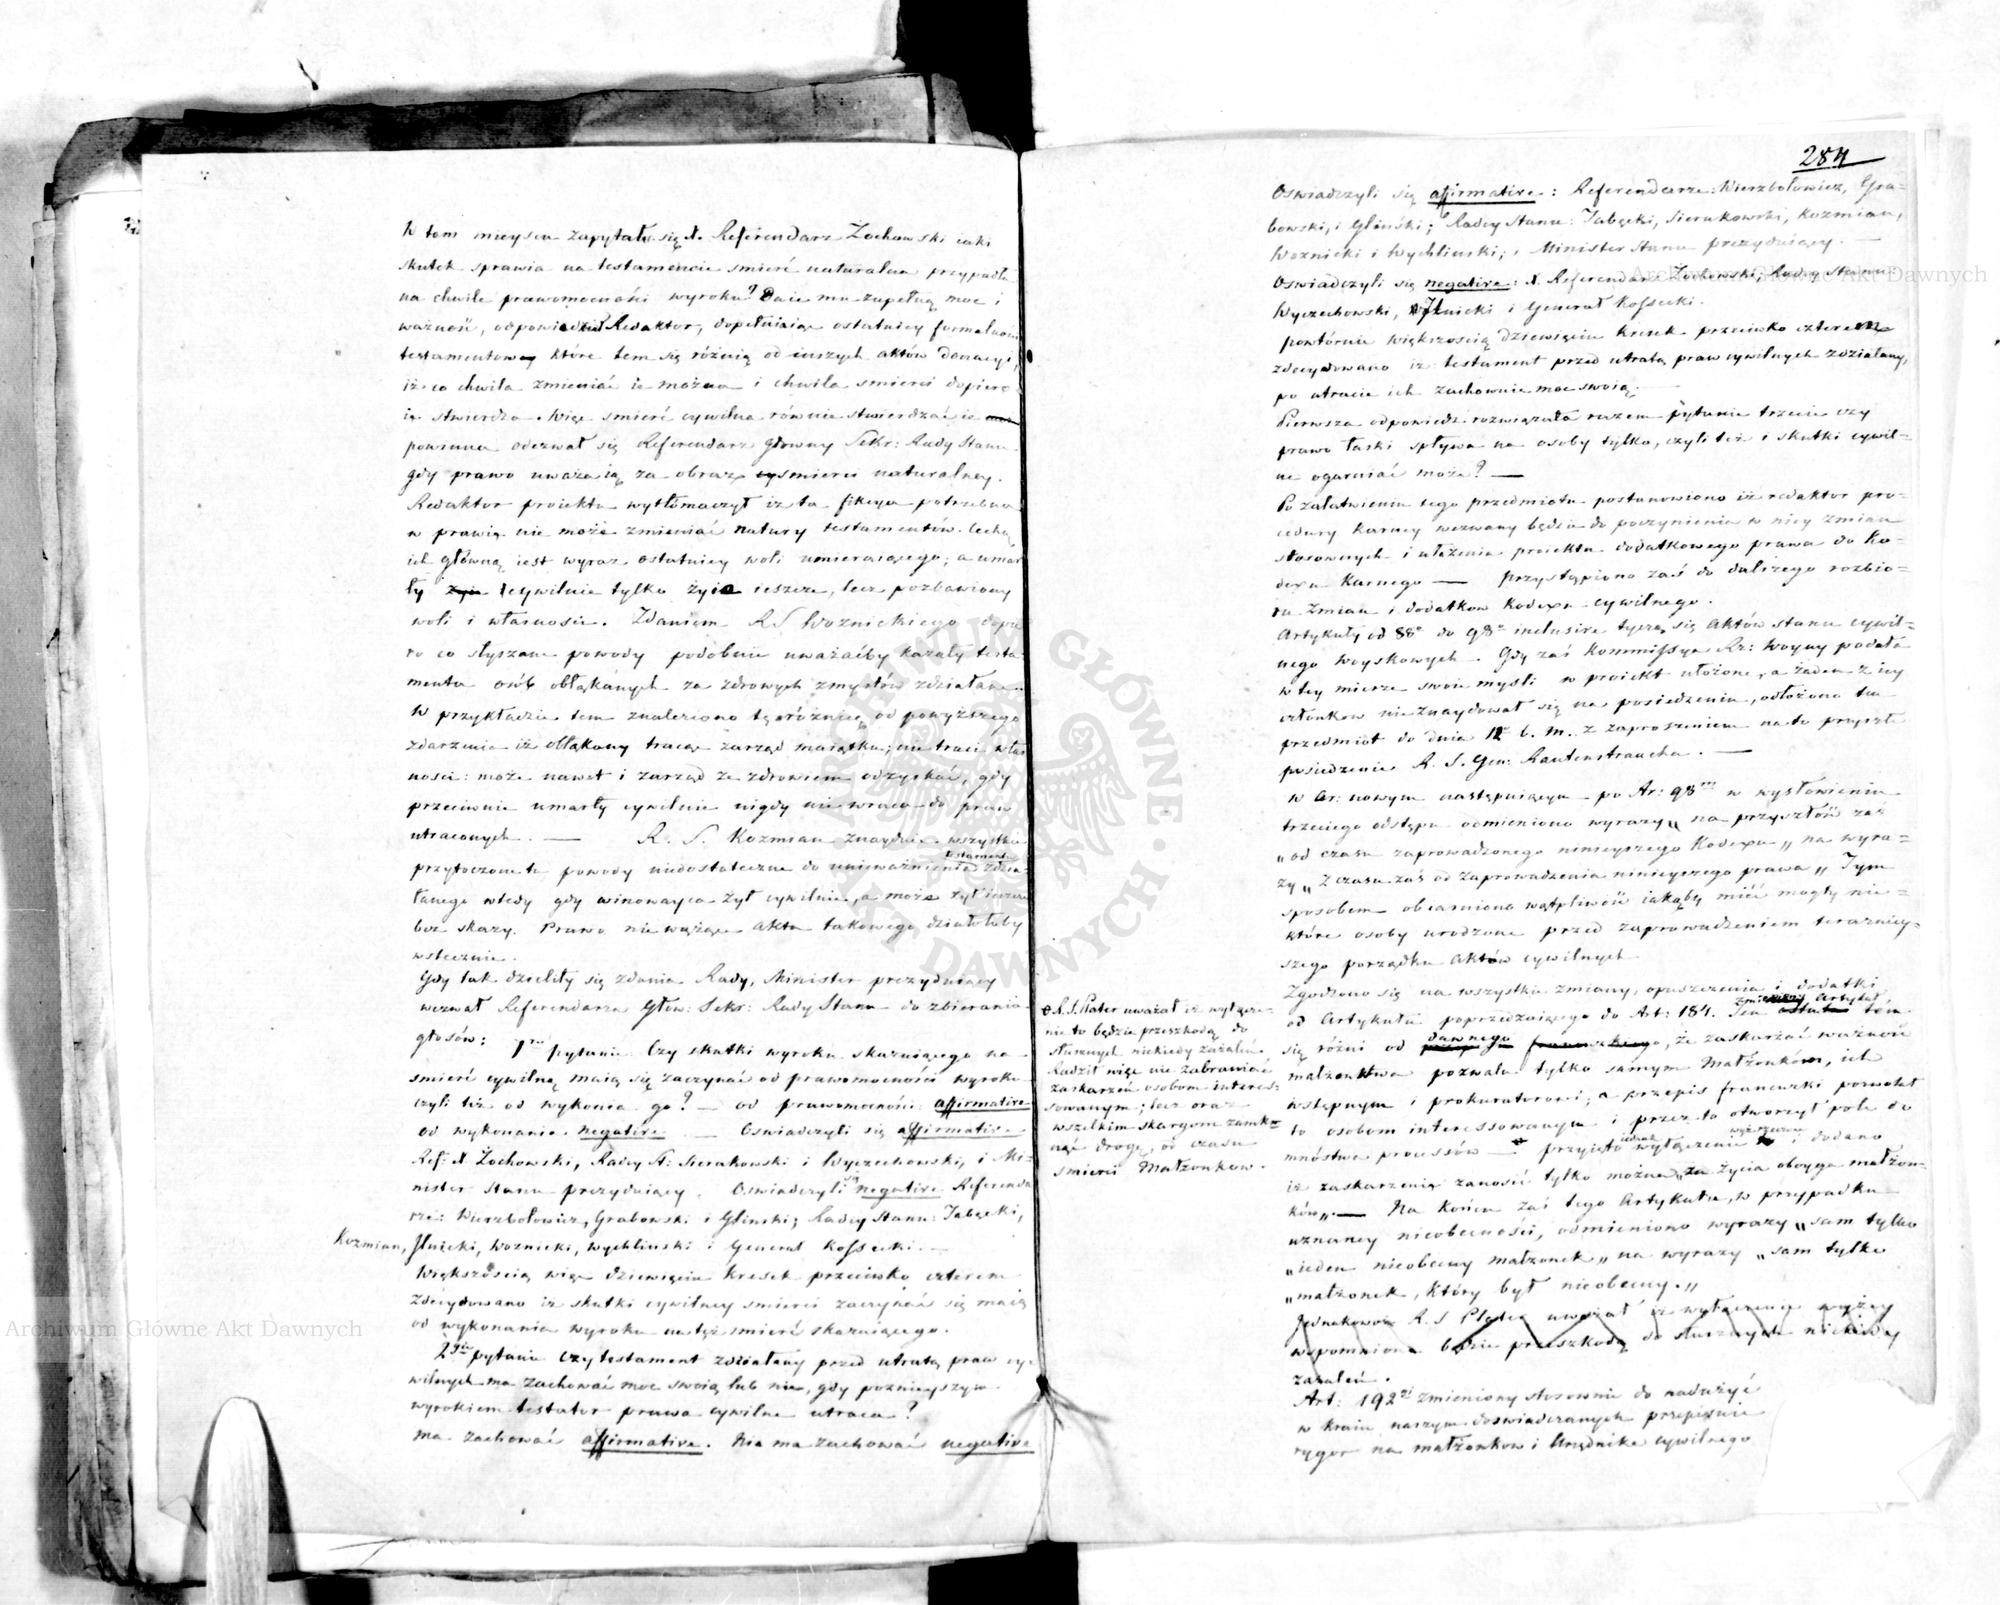 W tem mieyscu zapytał się X. Referendarz Żochowski iaki
skutek sprawia na testamencie smierć naturalna przypadła
na chwile prawomocności wyroku? Daie mu zupełną moc i
ważność, odpowiedział Redaktor, dopełniaiąc ostatniey formalności
testamentowey które tem się różnią od inszych aktów donacyi,
iż co chwila zmieniać ie można i chwila smierci dopiero
ie stwierdza. Więc smierć cywilna równie stwierdzać ie
powinna odezwał się Referendarz Głowny Sekr: Rady Stanu
gdy prawo uważa ią za obraz smierci naturalney.
Redaktor proiektu wytłómaczył iż ta fikcya potrzebna
w prawie nie może zmieniać natury testamentów. Cechą
ich główną iest wyraz ostatniey woli umieraiącego; a umar
ły cywilnie tylko żyie ieszcze, lecz pozbawiony
woli i własności. Zdaniem R S Woznickiego dopie
ro co słyszane powody podobnie uważaćby kazały testa
menta osób obłąkanych za zdrowych zmysłów zdziałane.
W przykładzie tem znaleziono tę różnicę od powyższego
zdarzenia iż obłąkany tracąc zarząd maiątku, nie traci włas
ności: może nawet i zarząd ze zdrowiem odzyskać, gdy
przeciwnie umarły cywilnie nigdy nie wraca do praw
utraconych. — R. S. Kozmian znayduie wszystkie
przytoczone tu powody niedostateczne do unieważnienia testamentu zdzia
łanego wtedy gdy winowayca żył cywilnie, a może żył ieszcze
bez skazy. Prawo nieważące akta takowego działałoby
wstecznie.
Gdy tak dzieliły się zdania Rady, Minister prezyduiący
wezwał Referendarza Głów: Sekr: Rady Stanu do zbierania
głosów: 1re pytanie: Czy skutki wyroku skazuiącego na
smierć cywilną maią się zaczynać od prawomocności wyroku
czyli też od wykonia go? — od prawomocności affirmative
od wykonania negative — Oswiadczyli się affirmative
Ref: X Żochowski, Radcy St: Sierakowski i Wyczechowski, i Mi-
nister Stanu prezyduiący. Oswiadczyli się negative Referenda
rze: Wierzbołowicz, Grabowski i Gliński; Radcy Stanu: Tabęcki,
Kozmian, Ilnicki, Woznicki, Wychliński i Generał Kossecki. —
Większością więc dziewięciu kresek przeciwko czterem
zdecydowano iż skutki cywilney smierci zaczynać się maią
od wykonania wyroku na tęż smierć skazuiącego.
2gie pytanie Czy testament zdziałany przed utratą praw cy-
wilnych ma zachować moc swoią lub nie, gdy poznieyszym
wyrokiem testator prawa cywilne utraca?
Ma zachować affirmative. Nie ma zachować negative
284
Oswiadczyli się affirmative: Referendarze: Wierzbołowicz, Gra-
bowski, i Gliński; Radcy Stanu: Tabęcki, Sierakowski, Kozmian,
Woznicki i Wychlinski; i Minister Stanu prezyduiący. —
Oswiadczyli się negative: X Referendarz Żochowski, Radcy Stanu
Wyczechowski, Ilnicki i Generał Kossecki.
Powtórnie większością dziewięciu kresek przeciwko czterem
zdecydowano iż testament przed utratą praw cywilnych zdziałany,
po utracie ich zachownie moc swoią. —
Pierwsza odpowiedz rozwiązała razem pytanie trzecie czy
prawo łaski spływa na osoby tylko, czyli też i skutki cywil-
ne ogarniać może? —
Po załatwieniu tego przedmiotu postanowiono iż redaktor pro-
cedury karney wezwany będzie do poczynienia w niey zmian
stosownych i ułożenia proiektu dodatkowego prawa do Ko-
dexu Karnego — przystąpiono zaś do dalszego rozbio-
ru zmian i dodatkow Kodexu cywilnego.
Artykuły od 88o do 98o inclusive tyczą się Aktów stanu cywil-
nego woyskowych. Gdy zaś Kommissya Rz: Woyny podała
w tey mierze swoie mysli w proiekt ułożone, a żaden z iey
członkow nie znaydował się na posiedzeniu, odłożono ten
przedmiot do dnia 12o b. m. z zaproszeniem na to przyszłe
posiedzenie R. S. Gen: Rautenstraucha. —
W Ar: nowym następuiącym po Ar: 98m w wysłowieniu
trzeciego odstępu odmieniono wyrazy „na przyszłość zaś
„od czasu zaprowadzonego ninieyszego Kodexu„ na wyra-
zy „Z czasu zaś od zaprowadzenia ninieyszego prawa„ Tym
sposobem obiaśniono wątpliwość iakąby mieć mogły nie-
które osoby urodzone przed zaprowadzeniem teraźniey-
szego porządku Aktów cywilnych.
Zgodzono się na wszystkie zmiany, opuszczenia i dodatki
od Artykułu poprzedzaiącego do Art: 184. Ten Artykuł tem
się różni od dawnego, że zaskarżać ważność
małzenstwa pozwala tylko samym Małżonkóm, ich
wstępnym i prokuratorowi; a przepis francuzki pozwolał
to osobom interessowanym i przez to otworzył pole do
mnóstwa processów — przyięto iednak wyłączenie wyższe i dodano
iż zaskarzenie zanosić tylko można „za życia oboyga małżon-
ków„. — Na końcu zaś tego Artykułu, w przypadku
uznaney nieobecności, odmieniono wyrazy „sam tylko
„ieden nieobecny małżonek„ na wyrazy „sam tylko
„małżonek, który był nieobecny.„
Jednakowoż R. S Plater uważał iż wyłączenie wyżey
wspomnione będzie przeszkodą do słusznych niekiedy
zażaleń.
Art: 192gi zmieniony stosownie do nadużyć
w kraiu naszym doswiadczanych przepisuie
rygor na małżonkow i Urzędnika cywilnego
R. S. Plater uważał iż wyłącze-
nie to będzie przeszkodą do
słusznych niekiedy zażaleń.
Radził więc nie zabraniać
zaskarżeń osobom interes-
sowanym; lecz oraz
wszelkim skargom zamk-
nąć drogę, od czasu
śmierci Małżonkow.
Archiwum Główne Akt Dawnych
Archiwum Główne Akt Dawnych
ARCHIWUM GŁÓWNE AKT DAWNYCH